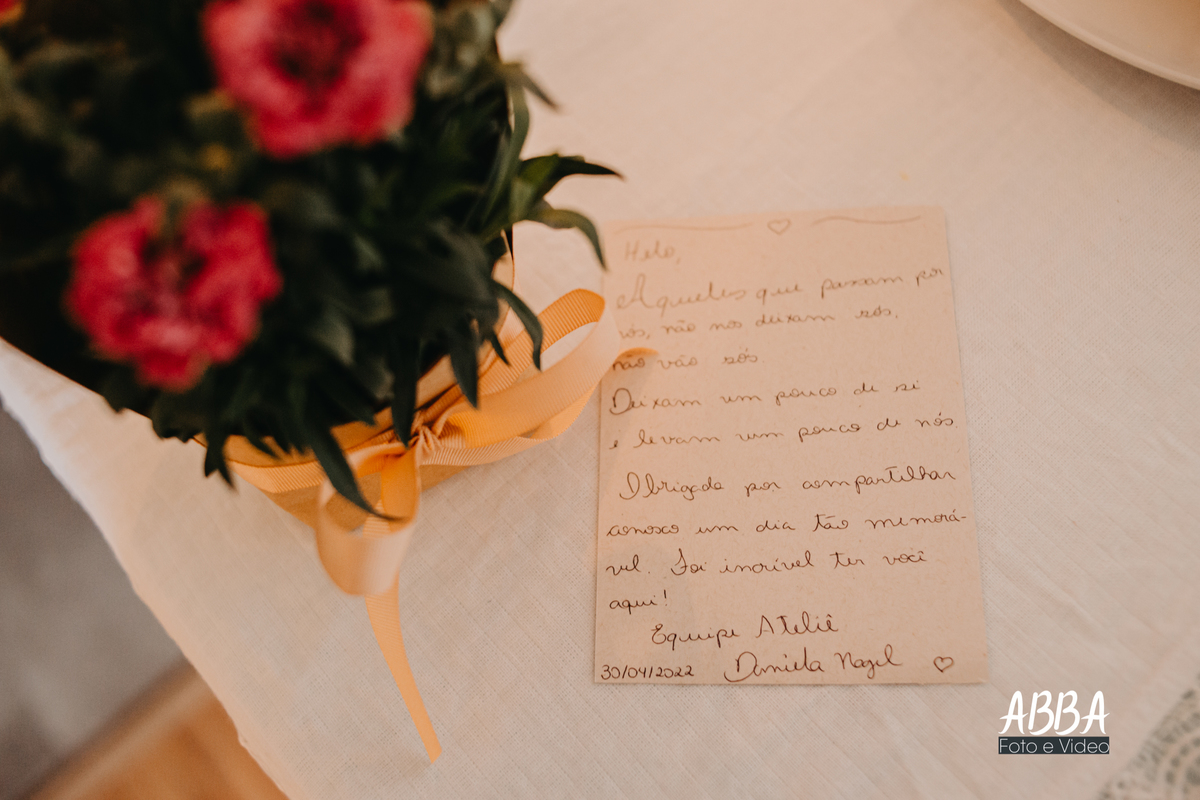 Helo,
Aqueles que passam por
nós, não nos deixam sós,
não vão sós
Deixam um pouco de si
e levam um pouco de nós
Obrigada por compartilhar
conosco um dia tão memorá-
vel. Foi incrível ter você
aqui!
Equipe Ateliê
30/04/2022 Daniela Nagel
ABBA
Foto e Video